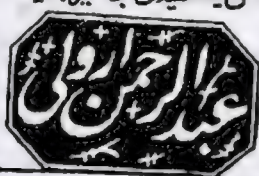 عبدالرحمن ارولی